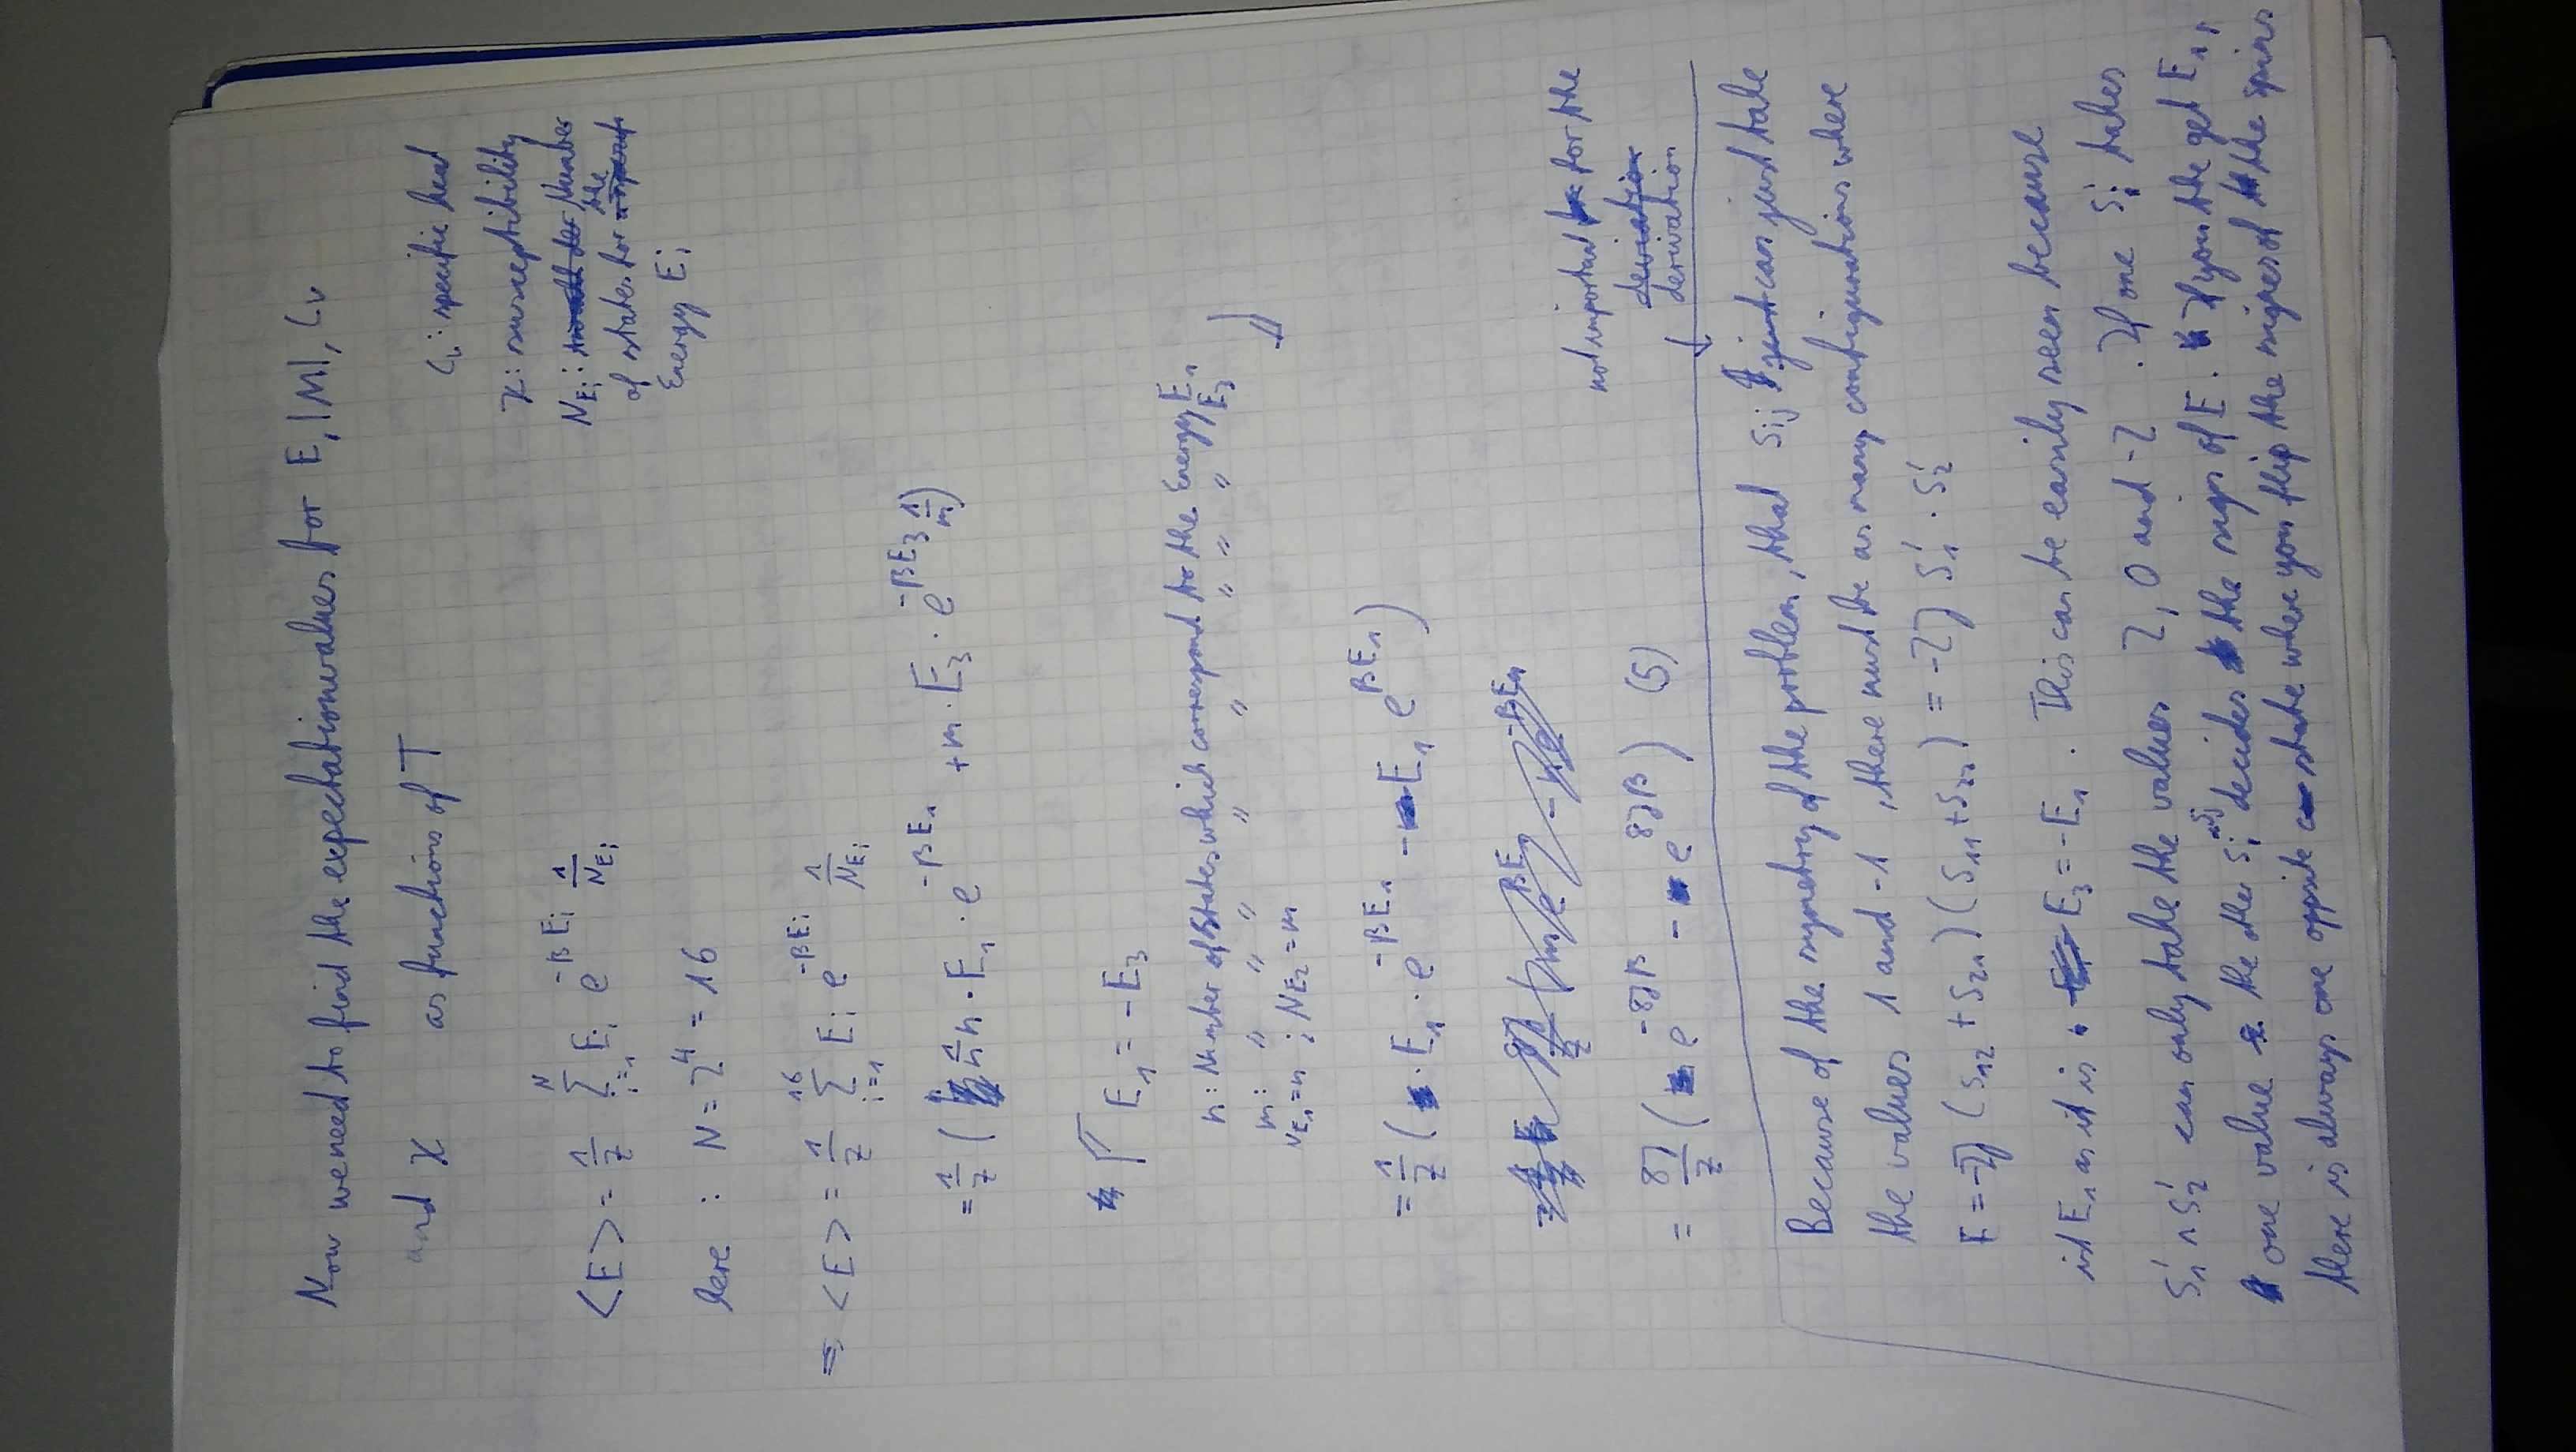 Now we need to find the expectationvalues for E, |M|, Cv
and χ as functions of T
Cv: specific heat
χ: susceptibility
N_Ei: Anzahl der Number
of states for the
Energy Ei
<E> = 1/Z Σ_{i=1}^{N} Ei e^{-βEi} 1/N_Ei
here : N = 2^4 = 16
⇒ <E> = 1/Z Σ_{i=1}^{16} Ei e^{-βEi} 1/N_Ei
= 1/Z ( 1/n n · E1 · e^{-βE1} + m · E3 · e^{-βE3} 1/m )
E1 = -E3
n: Number of States which correspond to the Energy E1
m: " " " " " " " " E3
N_E1 = n ; N_E2 = m
= 1/Z ( · E1 · e^{-βE1} - E1 e^{βE1} )
= 8J/Z ( e^{-8Jβ} - e^{8Jβ} ) (5)
not important for the
deviation
derivation
Because of the symetry of the problem, that Sij just can just take
the values 1 and -1 , there must be as many configurations where
E = -2J (S12 + S21) (S11 + S22) = -2J S1' · S2'
ist E1 as it is E3 = -E1 . This can be easily seen because
S1' ∧ S2' can only take the values 2, 0 and -2 . If one Si' takes
one value the other decides the sign of E. If you the get E1,
there is always one oppsite state where you flip the signes of the spins